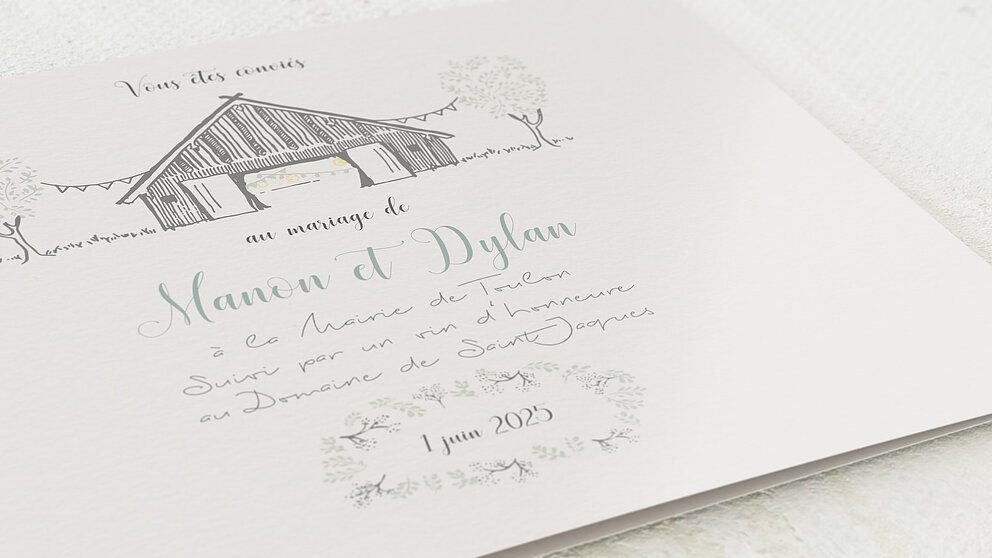 Vous êtes conviés
au mariage de
Manon et Dylan
à la Mairie de Toulon
Suivi par un vin d'honneure
au Domaine de Saint Jaques
1 juin 2025